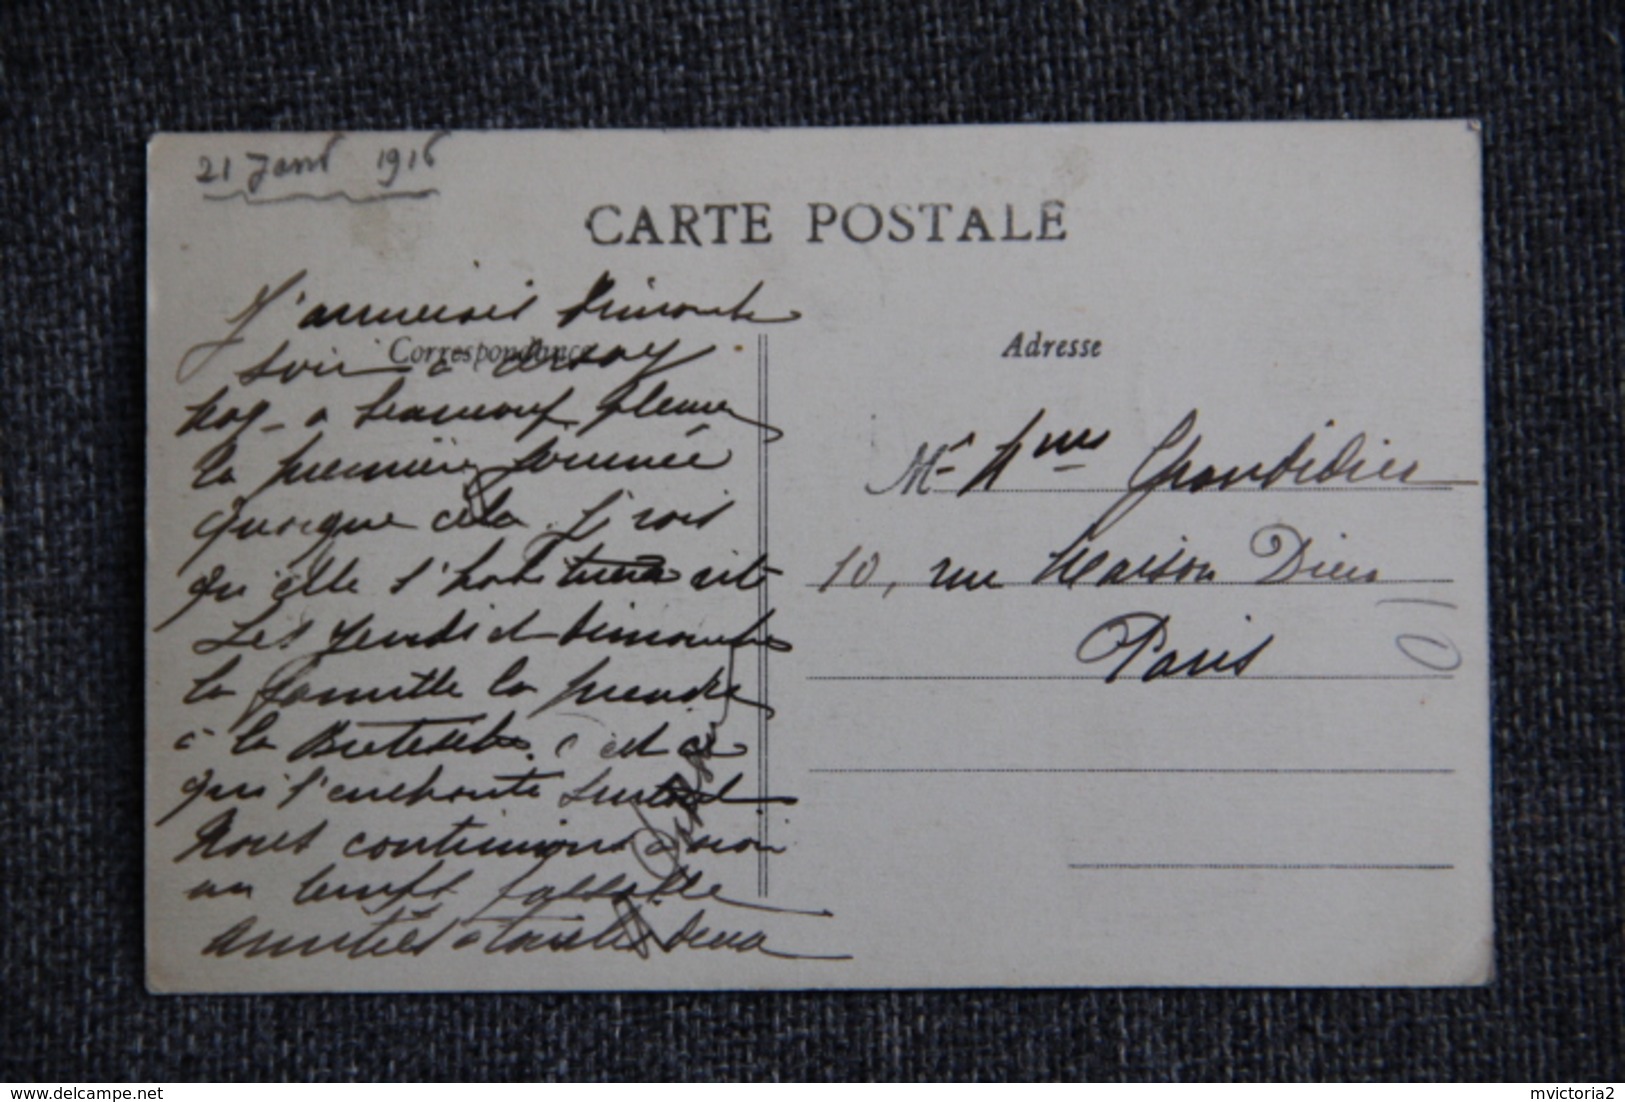 21 Janv 1916
CARTE POSTALE
J'ammenais Dimanche
Correspondance
soir à
a beaucoup pleuré
la première journée
quoique cela J'crois
qu'elle s'habituera vite
Les Jeudi et Dimanche
la famille la prendra
à la c'est ce
qui l'enchante surtout
Nous continuons à avoir
un temps
amitiés à toutes deux
Adresse
Mme Grandidier
10, rue Maison Dieu
Paris
delcampe.net
mvictoria2